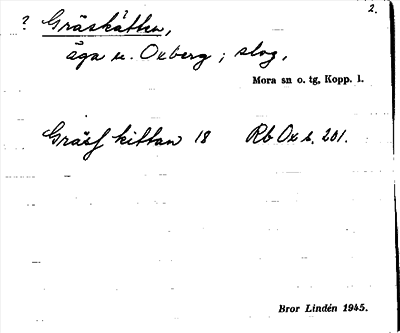 2.
? Gräskättan,
äga u. Oxberg; slog,
Mora sn o. tg, Kopp. l.
Gräsf kittan 18 Rb Ox s. 201.
Bror Lindén 1945.